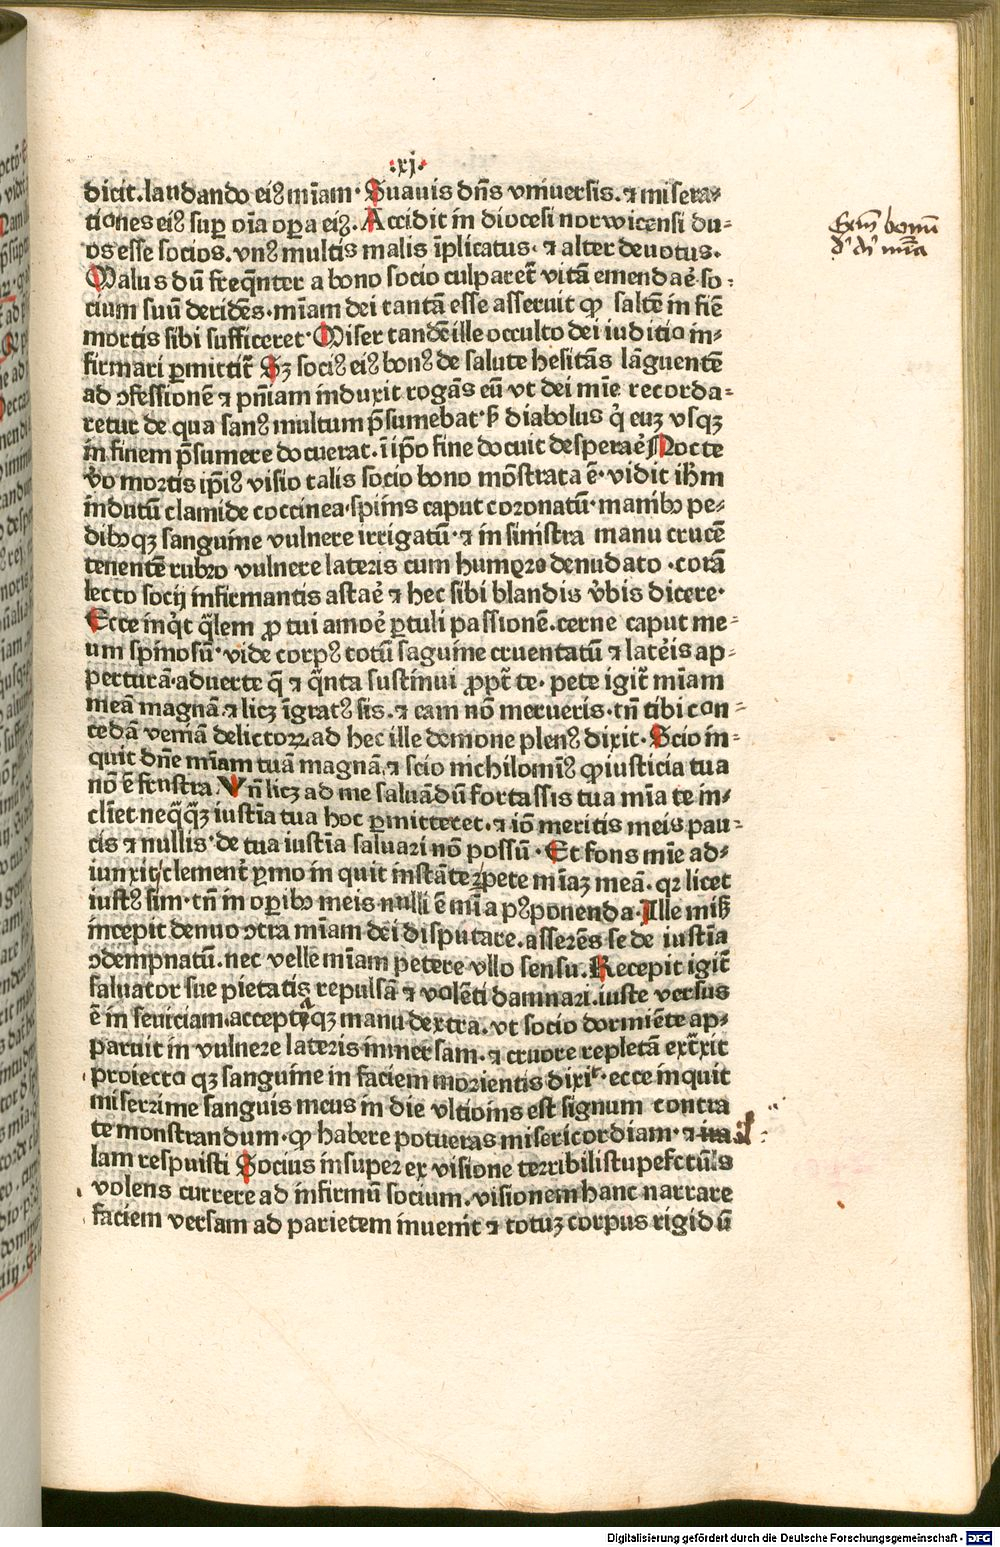 :xj·
dicit. laudando eiꝰ mīam· Suauis dn̄s vniuersis. ⁊ misera-
tiones eiꝰ suꝑ oīa oꝑa eiꝰ. Accidit in diocesi norwicensi du-
os esse socios. vnꝰ multis malis īplicatus· ⁊ alter deuotus.
Malus dū freq̄nter a bono socio culparet̄ vitā emendaē· so-
cium suū deridēs· mīam dei tantā esse asseruit ꝙ saltē in fiē
mortis sibi sufficeret· Miser tandē ille occulto dei iuditio in-
firmari ꝑmittit̄ Sꝫ sociꝰ eiꝰ bonꝰ de salute hesitās lāguentē
ad ↄfessionē ⁊ pn̄iam induxit rogās eū vt dei mīe recorda-
retur de qua sanꝰ multum p̄sumebat· ß diabolus q̇ euꝫ vsqꝫ
in finem p̄sumere docuerat. ī ip̄o fine docuit desperaē Nocte
v̄o mortis ip̄iꝰ visio talis socio bono mōstrata ē· vidit ih̄m
indutū clamide coccinea· spinis caput coronatū· manibꝰ pe-
dibꝰqꝫ sanguine vulnere irrigatū· ⁊ in sinistra manu crucē
tenentē rubro vulnere lateris cum humero denudato · corā
lecto socij infirmantis astaē ⁊ hec sibi blandis v̄bis dicere·
Ecce inq̇t q̄lem ꝓ tui amoē ꝑtuli passionē. cerne caput me-
um spinosū· vide corpꝰ totū sāguine cruentatū ⁊ latēis ap-
perturā· aduerte q̄ ⁊ q̄nta sustinui ꝓpt̄ te· pete igit̄ mīam
meā magnā. ⁊ licꝫ īgratꝰ sis. ⁊ eam nō merueris· tn̄ tibi con-
cedā veniā delictoꝝ ad hec ille demone plenꝰ dixit· Scio in-
quit dn̄e mīam tuā magnā, ⁊ scio nichilominꝰ ꝙ iusticia tua
nō ē frustra Vn̄ licꝫ ad me saluādū fortassis tua mīa te in-
clīet neq̄qꝫ iustīa tua hoc ꝑmitteret. ⁊ iō meritis meis pau-
cis ⁊ nullis· de tua iustīa saluari nō possū· Et fons mīe ad-
iunxit clement̄ ꝑmo in quit instāter pete mīaꝫ meā· qꝛ licet
iustꝰ sim· tn̄ in oꝑibꝰ meis nulli ē mīa pꝰponenda· Ille miß
incepit denuo ↄtra mīam dei disputare. asserēs se de iustīa
ↄdempnatū. nec velle mīam petere vllo sensu. Recepit igit̄
saluator sue pietatis repulsā ⁊ volēti damnari. iuste versus
ē in seuiciam. acceptaqꝫ manu dextra. vt socio dormiēte ap-
paruit in vulnere lateris immersam. ⁊ cruore repletā ext̄xit
proiecto qꝫ sanguine in faciem morientis dixit· ecce inquit
miserrime sanguis meus in die vltionis est signum contra
te monstrandum· ꝙ habere potueras misericordiam· ⁊
lam respuisti Socius insuper ex visione terribili stupefctūs
volens currere ad infirmū socium. visionem hanc narrare
faciem versam ad parietem inuenit ⁊ totuꝫ corpus rigidū
Exm̄ bonum
Digitalisierung gefördert durch die Deutsche Forschungsgemeinschaft - DFG